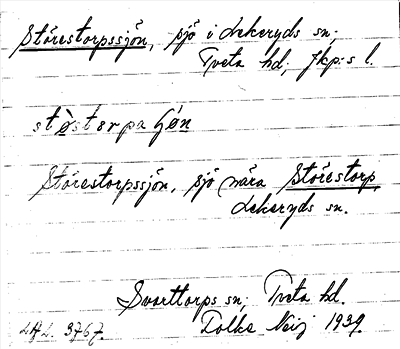 Störestorpssjön, sjö i Lekeryds sn.
Tveta hd, Jkp:s l.
stö̀storpa ʃö́n
Störestorpssjön, sjö nära Störestorp,
Lekeryds sn.
Svarttorps sn, Tveta hd.
LAL. 3767. Folke Neij 1939.